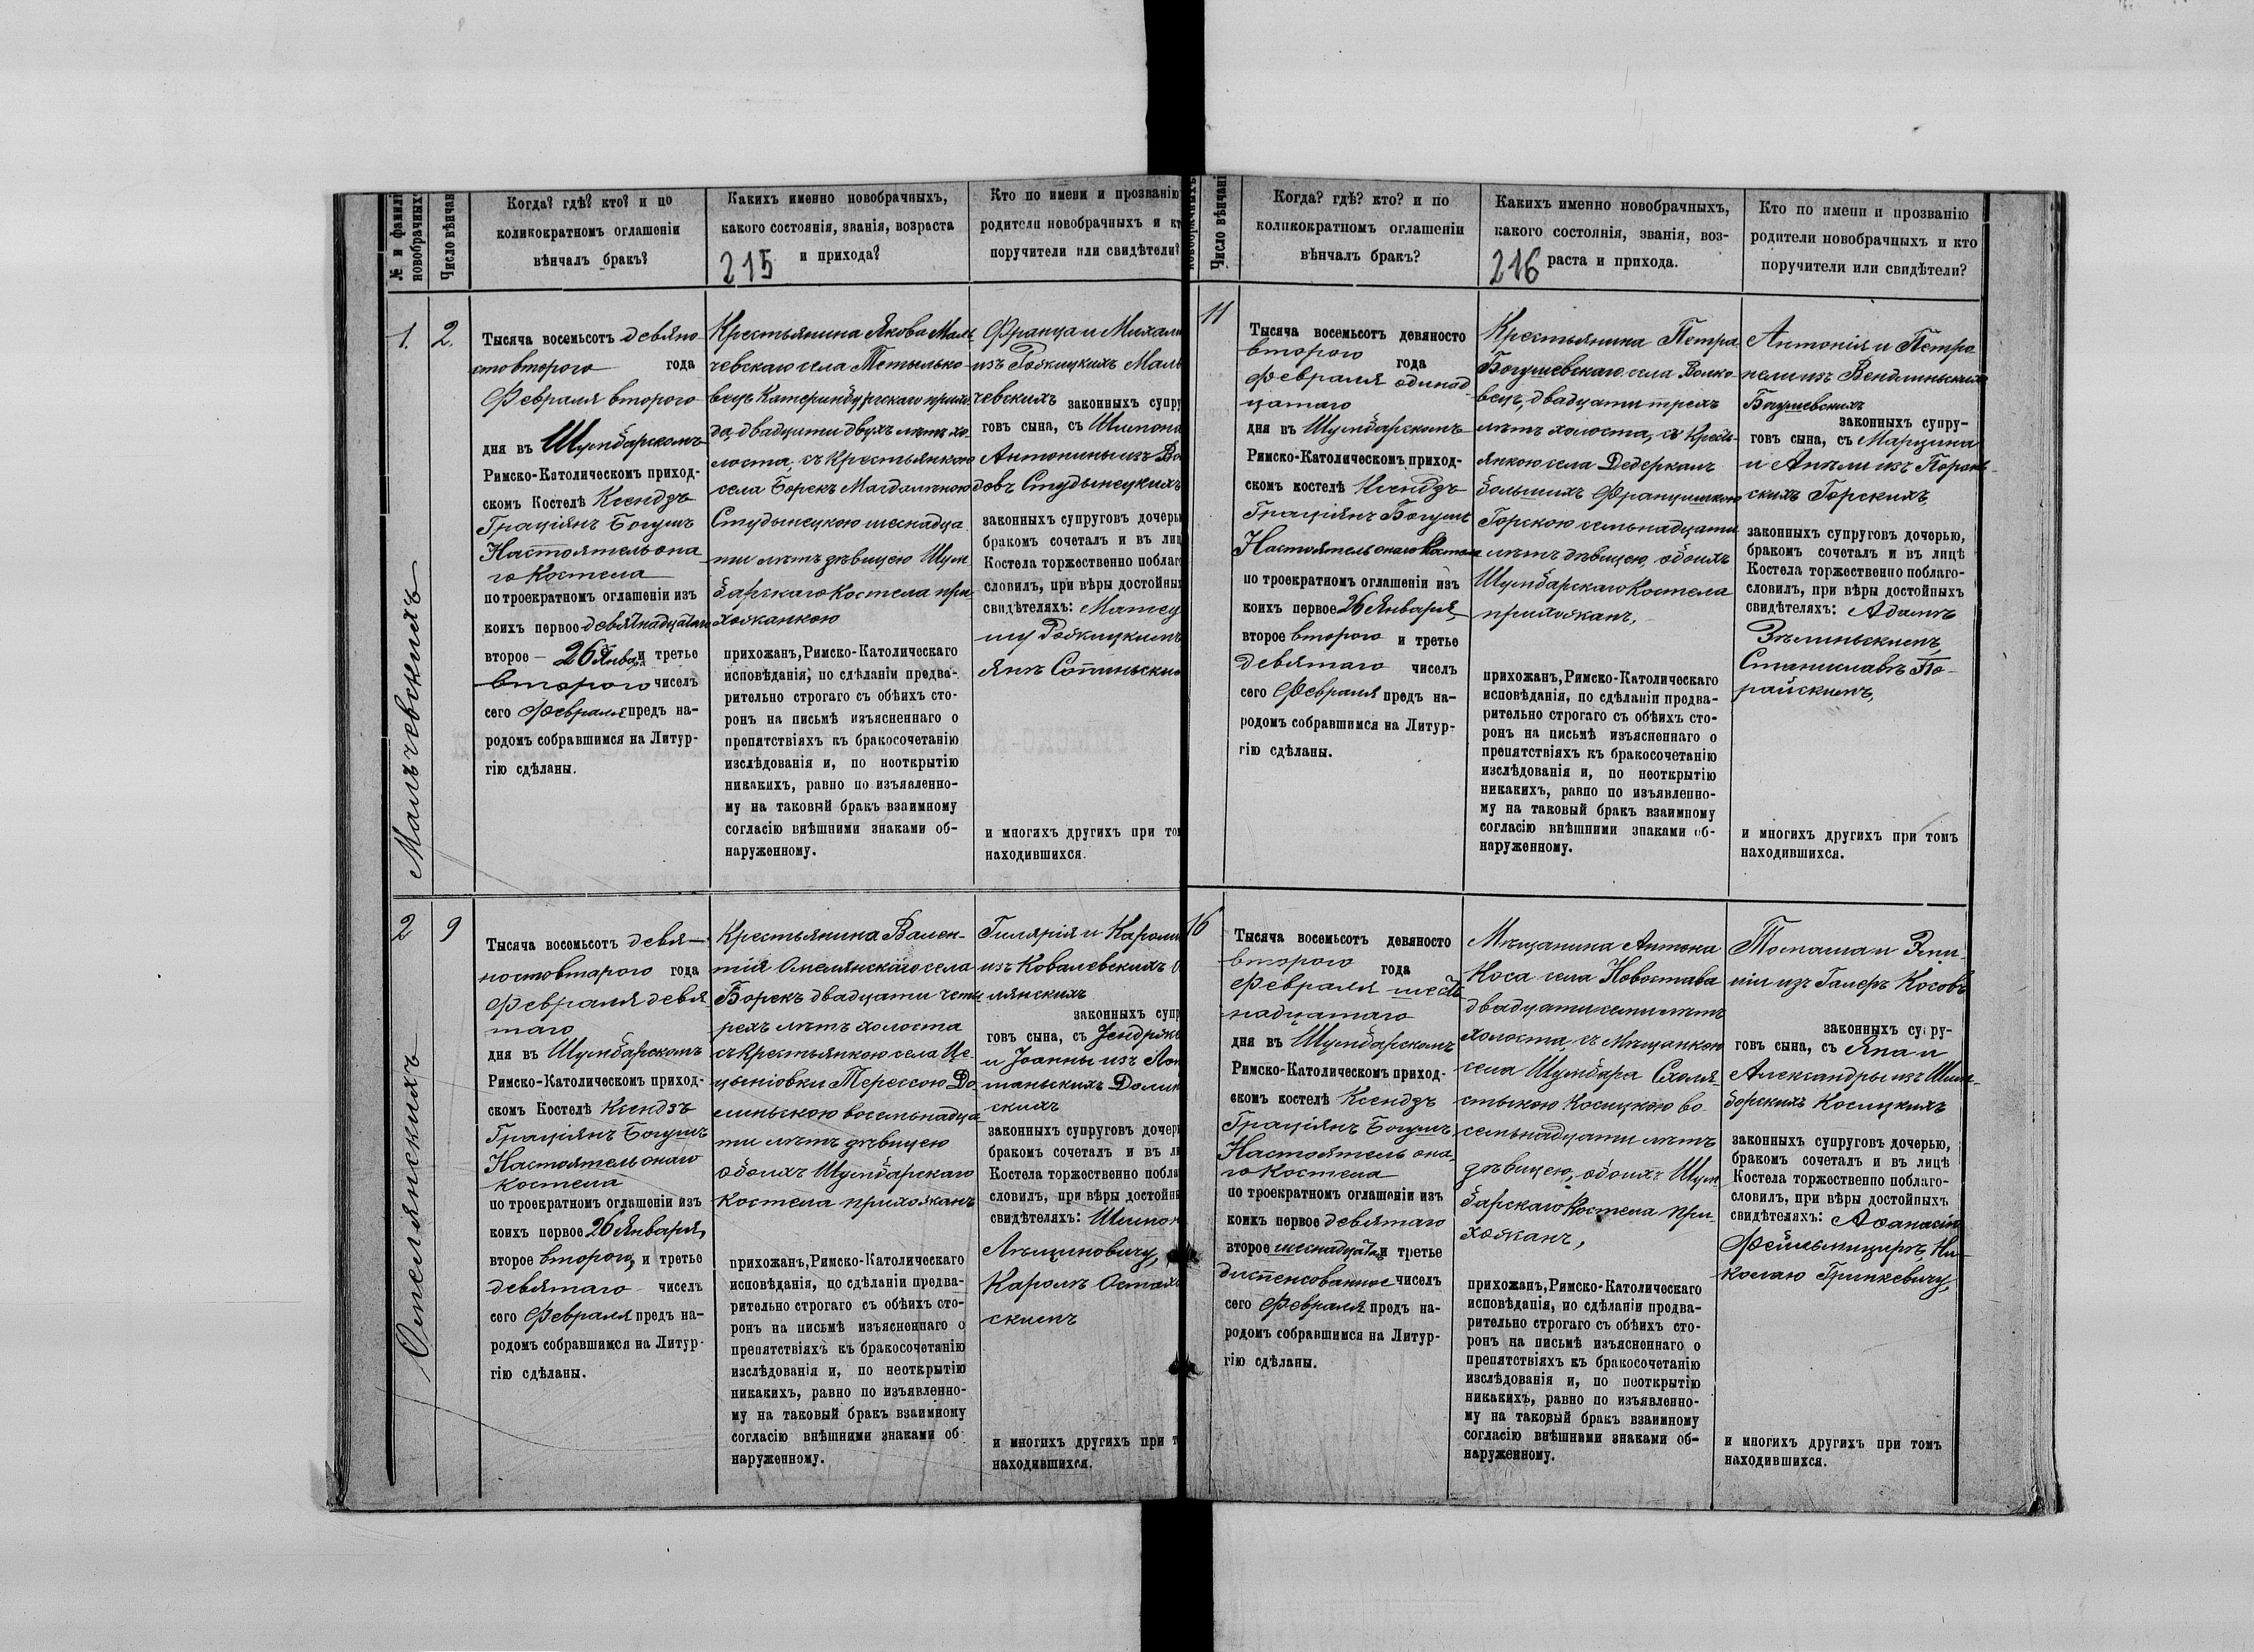 № и фамилі
новобрачных
Число вѣнчан
Когда? гдѣ? кто? и по
коликократномъ оглашеніи
вѣнчалъ бракъ?
Какихъ именно новобрачныхъ,
какого состоянія, званія, возраста
и прихода?
215
Кто по имени и прозванію
родители новобрачныхъ и кт
поручители или свидѣтели?
1.
Мальчевскихъ
2.
Тысяча восемьсотъ девяно-
стовторого года
Февраля второго
дня въ Шумбарскомъ
Римско-Католическомъ приход-
скомъ Костелѣ Ксендзъ
Граціянъ Богушъ
Настоятель она
го Костела
по троекратномъ оглашеніи изъ
коихъ первое девятнадцатаго
второе — 26 Января и третье
второго чиселъ
сего Февраля предъ на-
родомъ собравшимся на Литур-
гію сдѣланы.
Крестьянина Якова Маль-
чевскаго села Тетылько-
вецъ Катеринбургскаго прихо-
да, двадцати двухъ лѣтъ хо-
лоста, съ Крестьянкою
села Борекъ Магдаленою
Студынецкою шеснадца
ти лѣтъ дѣвицею Шум-
барскаго Костела при-
хожанкою
прихожанъ, Римско-Католическаго
исповѣданія, по сдѣланіи предва-
рительно строгаго съ обѣихъ сто-
ронъ на письмѣ изъясненнаго о
препятствіяхъ къ бракосочетанію
изслѣдованія и, по неоткрытію
никакихъ, равно по изъявленно-
му на таковый бракъ взаимному
согласію внѣшними знаками об-
наруженному.
Франца и Михали
изъ Рожицкихъ Маль
чевскихъ законныхъ супру
говъ сына, съ Шимона
Антонины изъ Во
довъ Студынецкихъ
законныхъ супруговъ дочерь
бракомъ сочеталъ и въ лиц
Костела торжественно поблаг
словилъ, при вѣры достойных
свидѣтеляхъ: Матеу
шу Рожицкимъ
Янъ
и многихъ другихъ при то
находившихся.
2
Омелянскихъ
9
Тысяча восемьсотъ девя-
ностовтарого года
Февраля девя
таго
дня въ Шумбарскомъ
Римско-Католическомъ приход-
скомъ Костелѣ Ксендзъ
Граціянъ Богушъ
Настоятель онаго
Костела
по троекратномъ оглашеніи изъ
коихъ первое 26 Января,
второе второго, и третье
девятаго чиселъ
сего Февраля предъ на-
родомъ собравшимся на Литур-
гію сдѣланы.
Крестьянина Вален-
тія Омелянскаго села
Борекъ двадцати четы
рехъ лѣтъ холоста
съ Крестьянкою села Це-
цыніовки Терессою До-
линьскою восемьнадца
ти лѣтъ дѣвицею
обоихъ Шумбарскаго
Костела прихожанъ
прихожанъ, Римско-Католическаго
исповѣданія, по сдѣланіи предва-
рительно строгаго съ обѣихъ сто-
ронъ на письмѣ изъясненнаго о
препятствіяхъ къ бракосочетанію
изслѣдованія и, по неоткрытію
никакихъ, равно по изъявленно-
му на таковый бракъ взаимному
согласію внѣшними знаками об
наруженному.
Гилярія и Кароли
изъ Ковалевскихъ О
лянскихъ
законныхъ супр
говъ сына, съ Јендрже
и Јоанны изъ Лон
маньскихъ Долин
скихъ
законныхъ супруговъ дочерь
бракомъ сочеталъ и въ ли
Костела торжественно побла
словилъ, при вѣры достойны
свидѣтеляхъ: Шимон
Лѣщиновичу,
Кароль Остах
скимъ
и многихъ другихъ при т
находившихся.
новобрачныхъ
Число вѣнчані
Когда? гдѣ? кто? и по
коликократномъ оглашеніи
вѣнчалъ бракъ?
Какихъ именно новобрачныхъ,
какого состоянія, званія, воз-
раста и прихода.
216
Кто по имени и прозванію
родители новобрачныхъ и кто
поручители или свидѣтели?
11
Тысяча восемьсотъ девяносто
второго года
Февраля одинад
цатаго
дня въ Шумбарскомъ
Римско-Католическомъ приход-
скомъ костелѣ Ксендзъ
Граціянъ Богушъ
Настоятель онаго Костела
по троекратномъ оглашеніи изъ
коихъ первое 26 Января,
второе второго и третье
девятаго чиселъ
сего Февраля предъ на-
родомъ собравшимся на Литур-
гію сдѣланы.
Крестьянина Петра
Богушевскаго села Волко-
вецъ, двадцати трехъ
лѣтъ холоста, съ Кресть-
янкою села Дедеркалъ
большихъ Францишкою
Горскою семьнадцати
лѣтъ дѣвицею, обоихъ
Шумбарскаго Костела
прихожанъ,
прихожанъ, Римско-Католическаго
исповѣданія, по сдѣланіи предва-
рительно строгаго съ обѣихъ сто-
ронъ на письмѣ изъясненнаго о
препятствіяхъ къ бракосочетанію
изслѣдованія и, по неоткрытію
никакихъ, равно по изъявленно-
му на таковый бракъ взаимному
согласію внѣшними знаками об-
наруженному.
Антонія и Петро
нели изъ Вендлиньскихъ
Богушевскихъ
законныхъ супру-
говъ сына, съ Марцина
и Анѣли изъ
скихъ Горскихъ,
законныхъ супруговъ дочерью,
бракомъ сочеталъ и въ лицѣ
Костела торжественно поблаго-
словилъ, при вѣры достойныхъ
свидѣтеляхъ: Адамъ
Зѣлиньскимъ,
Станиславъ По-
райскимъ,
и многихъ другихъ при томъ
находившихся.
16
Тысяча восемьсотъ девяносто
второго года
Февраля шест-
надцатаго
дня въ Шумбарскомъ
Римско-Католическомъ приход-
скомъ костелѣ Ксендзъ
Граціянъ Богушъ,
Настоятель она-
го Костела
по троекратномъ оглашеніи изъ
коихъ первое девятаго
второе шеснадцатаго и третье
диспенсованное чиселъ
сего Февраля предъ на-
родомъ собравшимся на Литур-
гію сдѣланы.
Мѣщанина Антона
Коса села Новостава
двадцати семи лѣтъ
холоста, съ Мѣщанкою
села Шумбара Схоля-
стыкою Косицкою во-
семьнадцати лѣтъ
дѣвицею, обоихъ Шум-
барскаго Костела при-
хожанъ,
прихожанъ, Римско-Католическаго
исповѣданія, по сдѣланіи предва-
рительно строгаго съ обѣихъ сто-
ронъ на письмѣ изъясненнаго о
препятствіяхъ къ бракосочетанію
изслѣдованія и, по неоткрытію
никакихъ, равно по изъявленно-
му на таковый бракъ взаимному
согласію внѣшними знаками об-
наруженному.
Томаша и
изъ Галеръ Косовъ
законныхъ супру-
говъ сына, съ Яна и
Александры изъ Шим-
борскихъ Косицкихъ
законныхъ супруговъ дочерью,
бракомъ сочеталъ и въ лицѣ
Костела торжественно поблаго-
словилъ, при вѣры достойныхъ
свидѣтеляхъ: Аѳанасій
Ни-
колаю Гринкевичу,
и многихъ другихъ при томъ
находившихся.